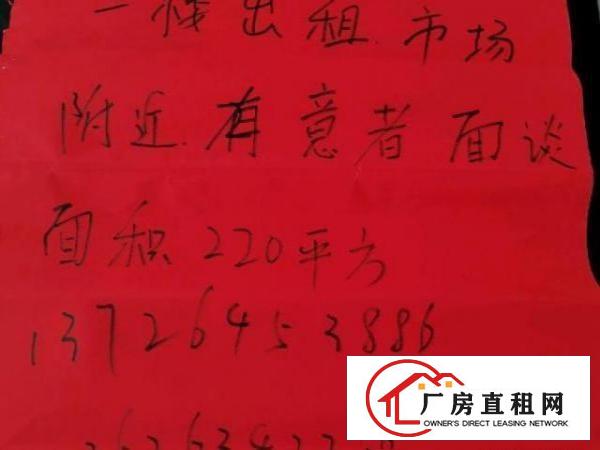 一栋出租.市场
附近.有意者面谈
面积220平方
13726453886
厂房直租网
OWNER'S DIRECT LEASING NETWORK